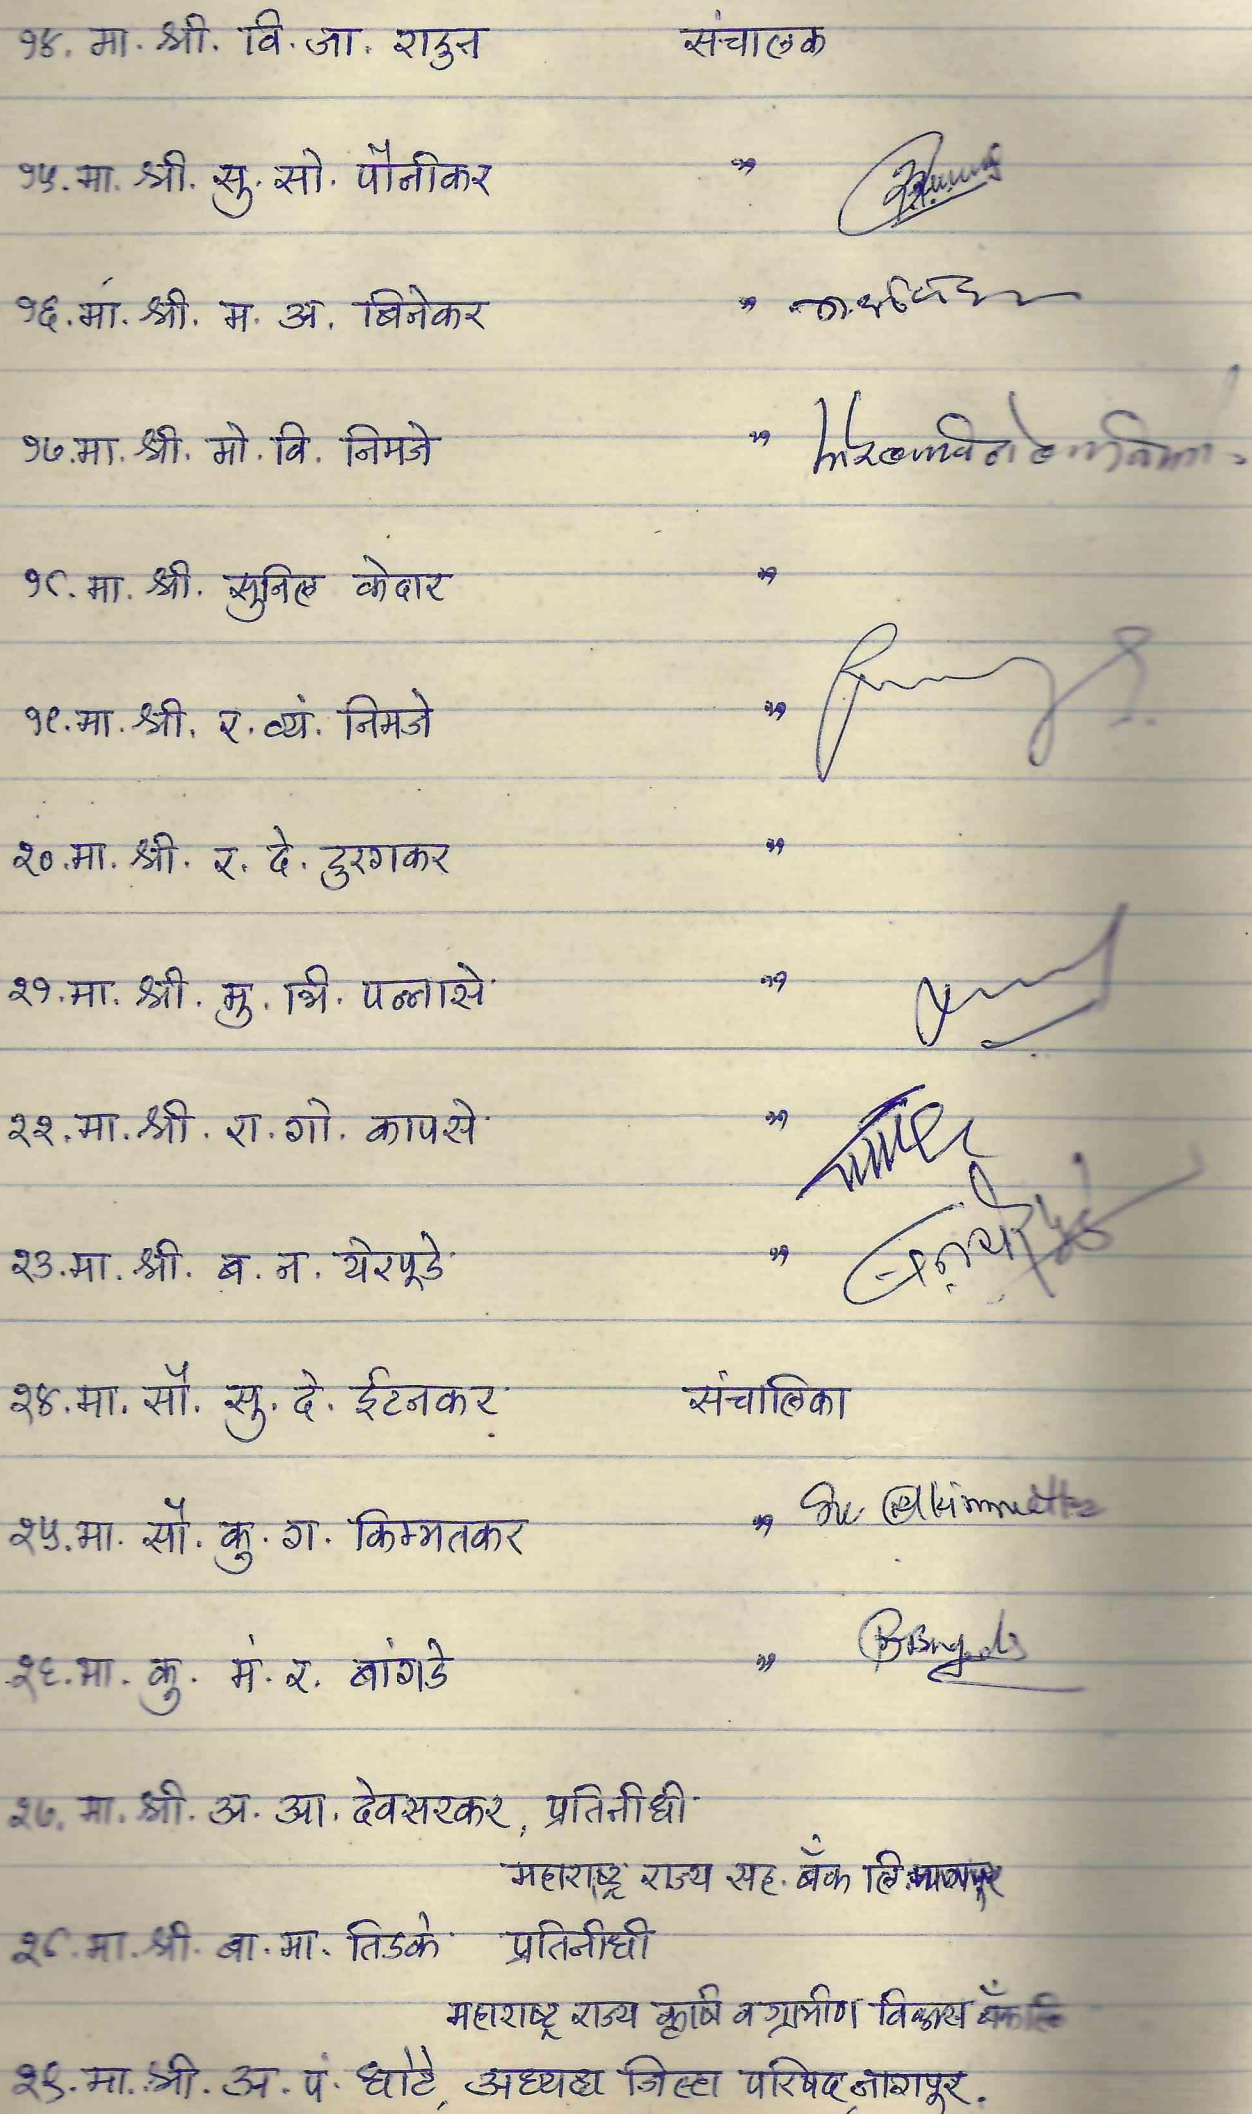 १४. मा. श्री. वि. जा. राऊत संचालक
१५. मा. श्री. सु. सो. पौनीकर "
१६. मा. श्री. म. अ. बिनेकर "
१७. मा. श्री. मो. वि. निमजे "
१८. मा. श्री. सुनिल केदार "
१९. मा. श्री. र. व्यं. निमजे "
२०. मा. श्री. र. दे. दुरुगकर "
२१. मा. श्री. मु. त्रि. पन्नासे "
२२. मा. श्री. रा. गो. कापसे "
२३. मा. श्री. ब. न. येरपूडे "
२४. मा. सौ. सु. दे. ईटनकर संचालिका
२५. मा. सौ. कु. ग. किम्मतकर "
२६. मा. कु. मं. र. बांगडे "
२७. मा. श्री. अ. आ. देवसरकर, प्रतिनीधी
महाराष्ट्र राज्य सह. बँक लि. नागपूर
२८. मा. श्री. बा. मा. तिडके प्रतिनीधी
महाराष्ट्र राज्य कृषि व ग्रामीण विकास बँक लि
२९. मा. श्री. अ. पं. धोटे, अध्यक्ष जिल्हा परिषद, नागपूर.